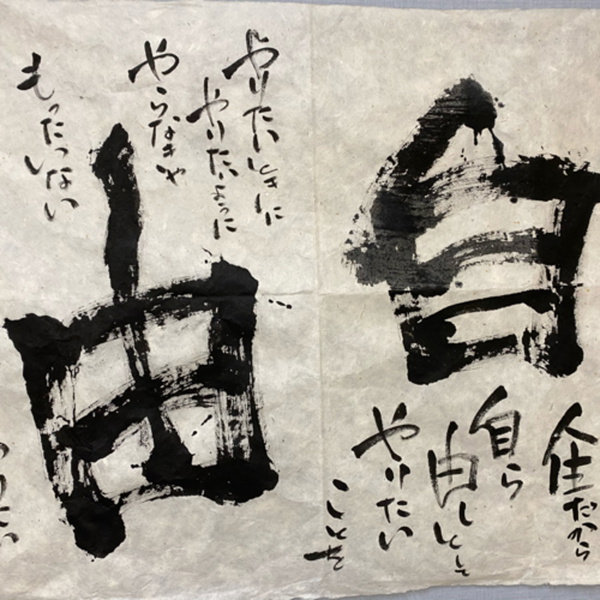 自
人生だから
自ら
由しとして
やりたい
ことを
由
やりたいときに
やりたいように
やらなきゃ
もったいない